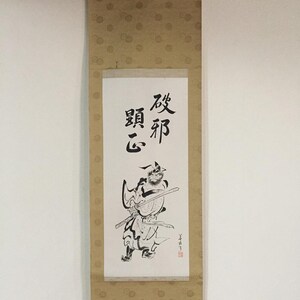 破邪
顕正